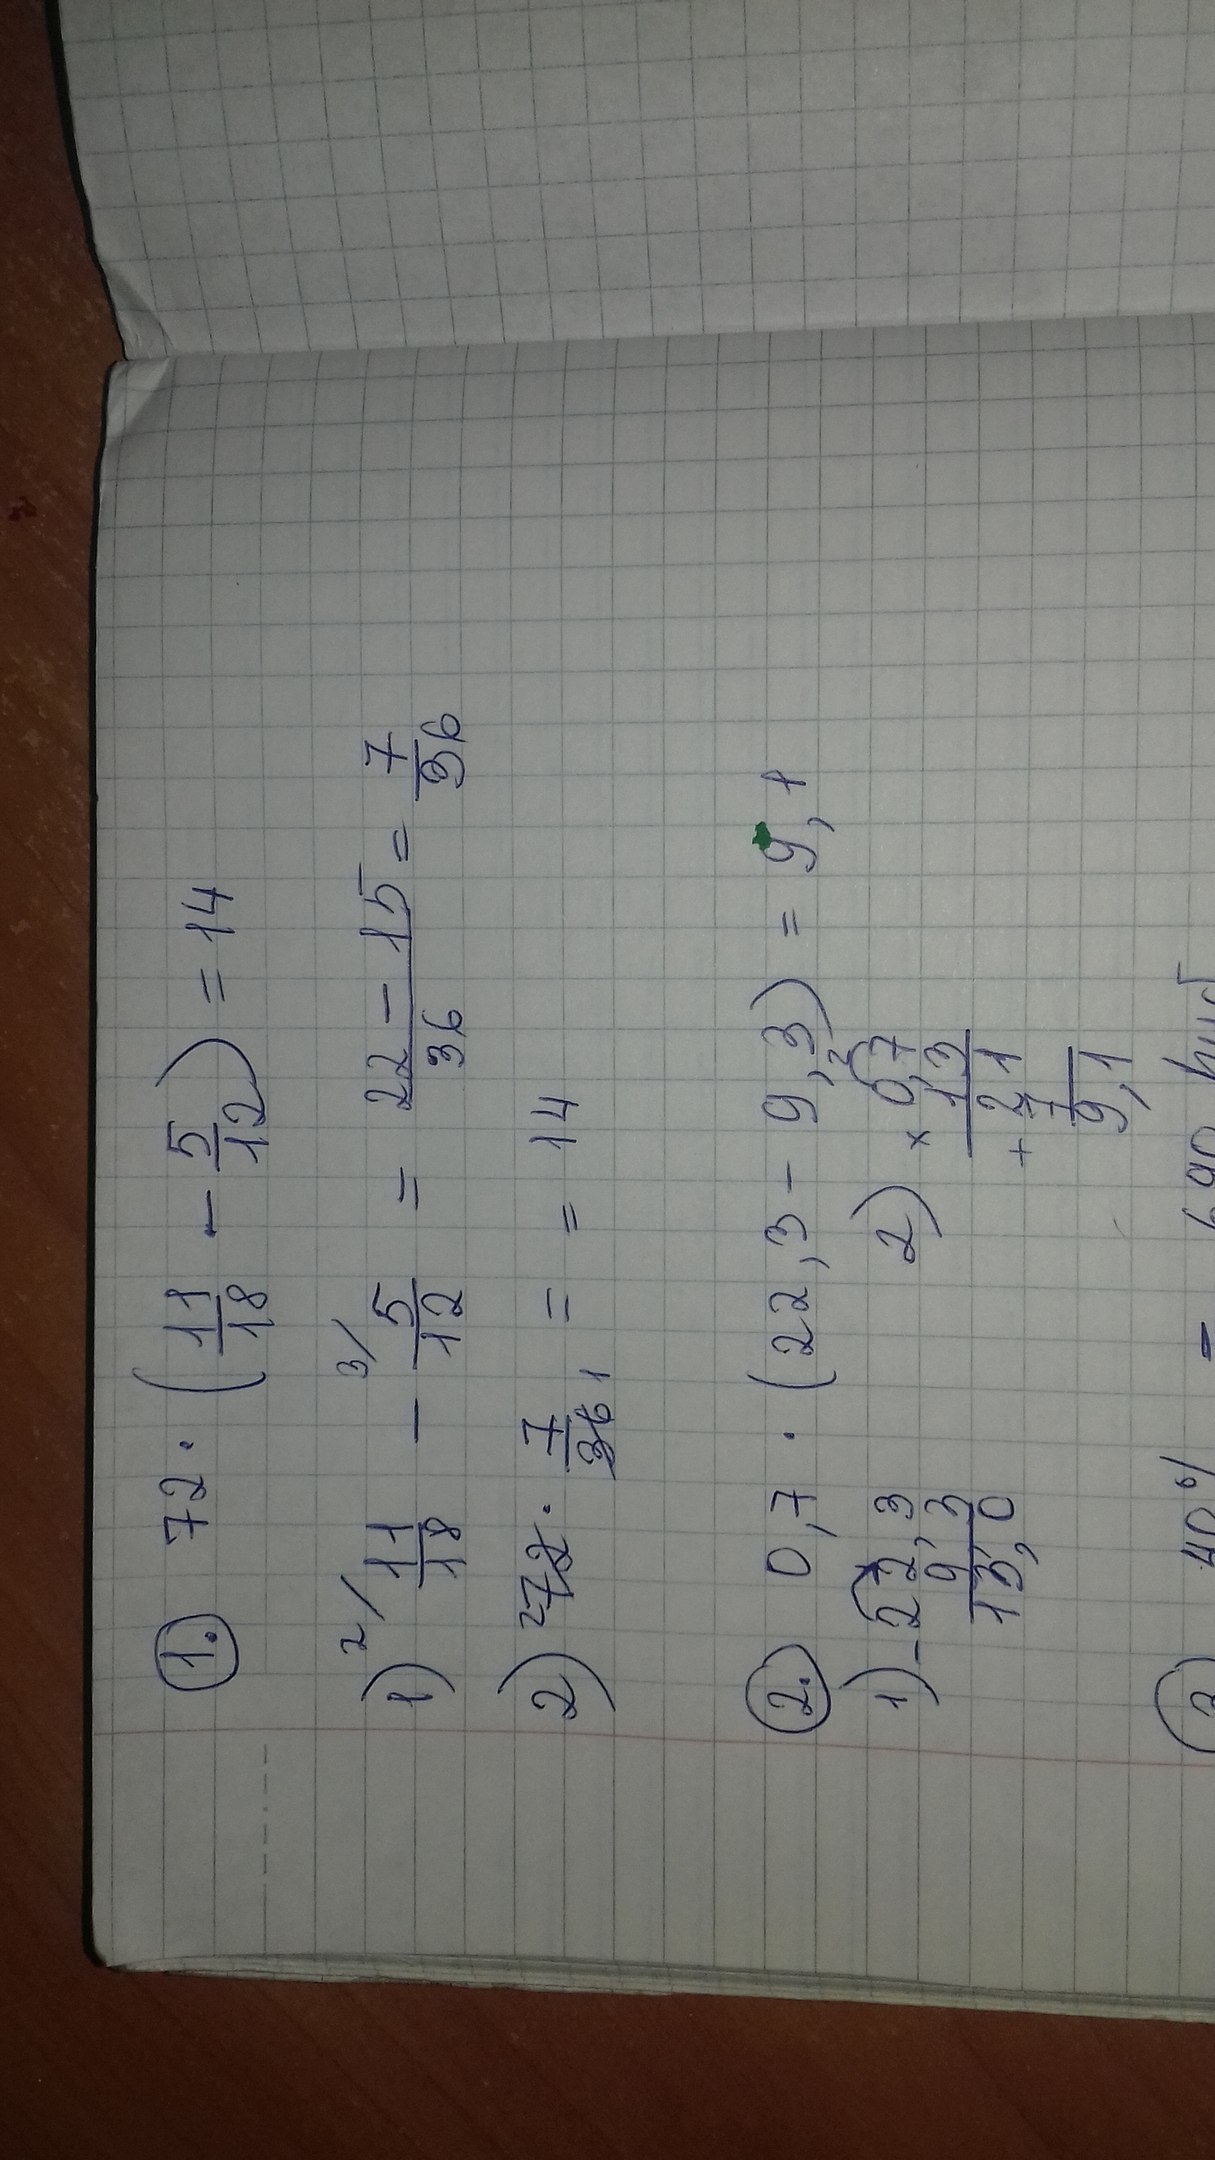 1. 72 · (11/18 - 5/12) = 14
1) 2/ 11/18 - 3/ 5/12 = (22 - 15)/36 = 7/36
2) 2 72 · 7/36 1 = = 14
2. 0,7 · (22,3 - 9,3) = 9,1
1) - 22,3
9,3
13,0
2) 2
× 0,7
13
+ 21
7
9,1
40%
=